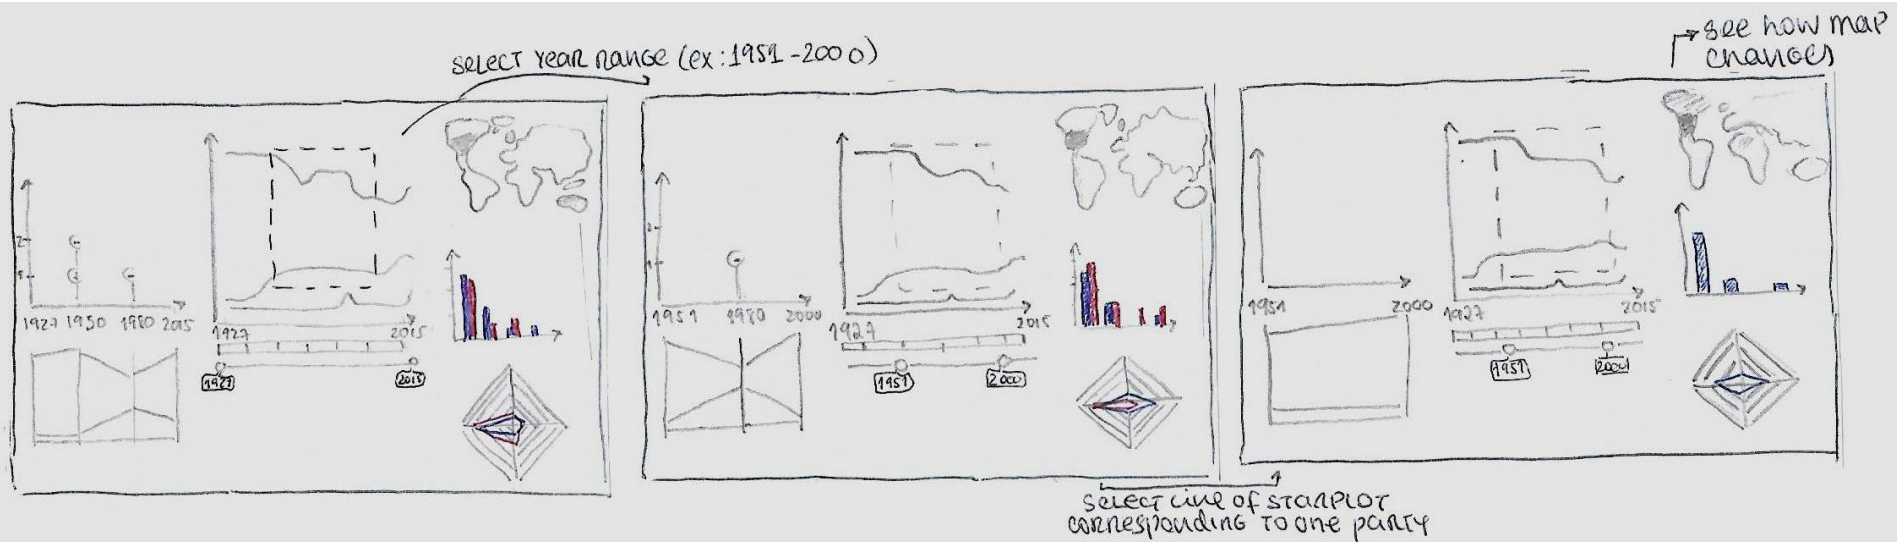 SELECT YEAR RANGE (ex:1951-2000)
see how map
changes
2
1927 1950 1980 2015
1927 2015
1927 2015
2
1
1951 1980 2000
1927 2015
1951 2000
1951 2000
1927 2015
1951 2000
SELECT Line OF STARPLOT
CORRESPONDING TO ONE PARTY